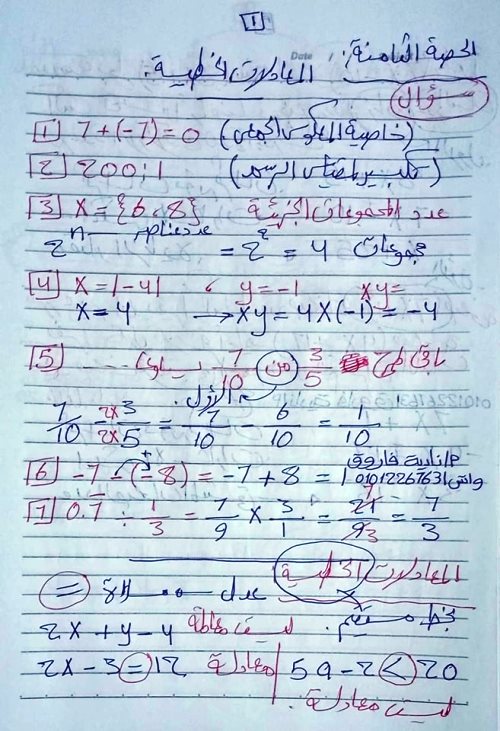 1
الحصة الثامنة: المعادلات الخطية.
Date
سؤال
1 7 + (-7) = 0 (خاصية المعكوس الجمعي)
2 200 : 1 (تكبير مقياس الرسم)
3 X = {6, 8} عدد المجموعات الجزئية
2ⁿ عدد عناصر = 2² = 4 مجموعات
4 X = |-4| ، y = -1 xy =
X = 4 → xy = 4 X (-1) = -4
5 باقي طرح 3/5 من 7/10 يساوي ...
الأول
7/10 - 2x3/2x5 = 7/10 - 6/10 = 1/10
6 -7 - (-8) = -7 + 8 = 1
م/نادية فاروق
واتس 01012267631
7 0.7 ÷ 1/3 = 7/9 X 3/1 = 21/9 = 7/3
المعادلات الخطية
=
خط مستقيم.
2X + y - 4 ليست معادلة
2X - 3 = 12 معادلة
5a - 2 < 20
ليست معادلة.